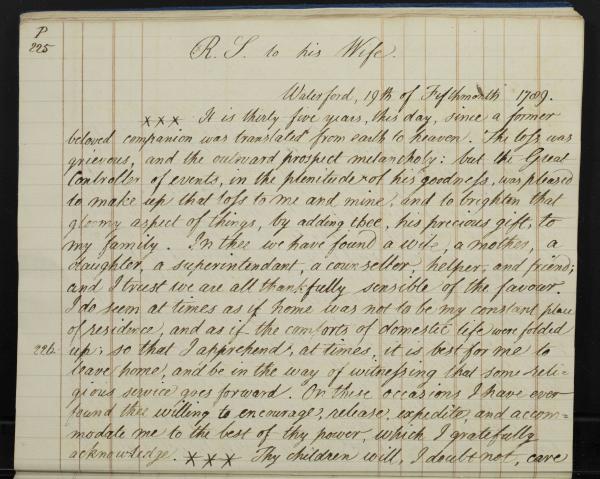 P
225
R. S. to his Wife.
Waterford, 19th of Fifthmonth 1789.
××× It is thirty five years, this day, since a former
beloved companion was translated from earth to heaven. The loss was
grievous, and the outward prospect melancholy: but the Great
Controller of events, in the plenitude of his goodness, was pleased
to make up that loss to me and mine, and to brighten that
gloomy aspect of things, by adding thee, his precious gift, to
my family. In thee we have found a wife, a mother, a
daughter, a superintendant, a counsellor, helper, and friend;
and I trust we are all thankfully sensible of the favour.
I do seem at times as if home was not to be my constant place
of residence, and as if the comforts of domestic life were folded
226 up; so that I apprehend, at times, it is best for me to
leave home, and be in the way of witnessing that some reli-
gious service goes forward. On these occasions I have ever
found thee willing to encourage, release, expedite, and accom-
modate me to the best of thy power, which I gratefully
acknowledge. ××× Thy children will, I doubt not, care